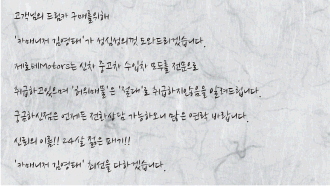 고객님의 드림카 구매를위해
'카매니저 김영태'가 성심성의껏 도와드리겠습니다.
제로백Motors는 신차 중고차 수입차 모두를 전문으로
취급하고있으며 '허위매물'은 '절대'로 취급하지않음을 알려드립니다.
궁금하신점은 언제든 전화상담 가능하오니 많은 연락 바랍니다.
신뢰의 이름!! 24살 젊은 패기!!
'카매니저 김영태' 최선을 다하겠습니다.